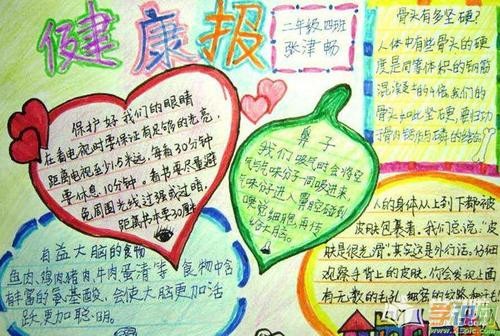 健康报
二年级四班
张津畅
骨头有多坚硬?
人体中有些骨头的硬
度是同等体积的钢筋
混凝土的4倍我们的
骨头如此坚硬,要归功
保护好我们的眼睛
在看电视时要保证有足够的光亮,
距离电视至少5米远,每看30分钟
要休息10分钟。看书要尽量避
免周围光线过强或过暗,
距离书本要30厘
鼻子
我们吸气时会将空
气与气味分子一同吸进来,
气味分子进入鼻腔碰到
嗅觉细胞再传
给大脑。
有益大脑的食物
鱼肉,鸡肉猪肉,牛肉蛋清等,食物中含
丰富的氨基酸,会使大脑更加活
跃,更加聪明。
人的身体从上到下都被
皮肤包裹着。我们总说:“皮
肤是很光滑”。其实这是外行话。仔细
观察手背上的皮肤,你会发现上面
有无数的毛孔